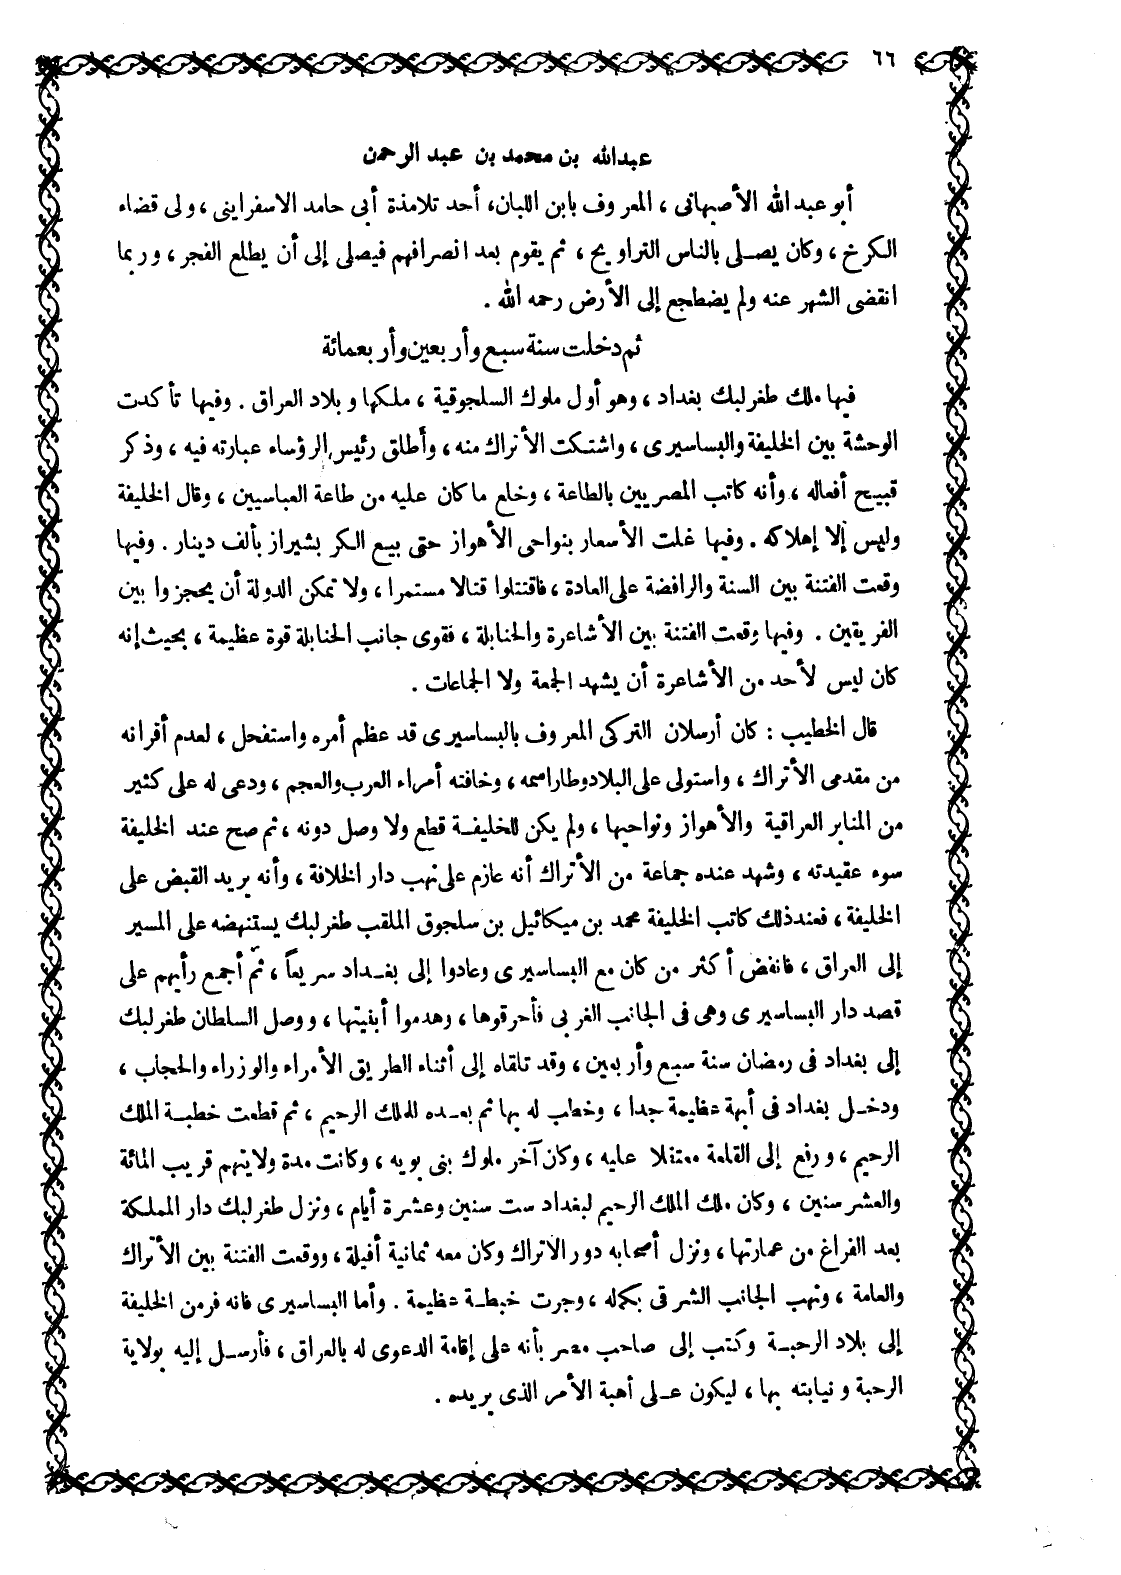 ٦٦
عبدالله بن محمد بن عبد الرحمن
أبو عبد الله الأصبهانى ، المعروف بابن اللبان، أحد تلامذة أبى حامد الاسفراينى ، ولى قضاء
الكرخ ، وكان يصلى بالناس التراويح ، ثم يقوم بعد انصرافهم فيصلى إلى أن يطلع الفجر ، وربما
انقضى الشهر عنه ولم يضطجع إلى الأرض رحمه الله .
ثم دخلت سنة سبع وأربعين وأربعمائة
فيها ملك طغرلبك بغداد ، وهو أول ملوك السلجوقية ، ملكها وبلاد العراق . وفيها تأكدت
الوحشة بين الخليفة والبساسيرى ، واشتكت الأتراك منه ، وأطلق رئيس الرؤساء عبارته فيه ، وذكر
قبيح أفعاله ، وأنه كاتب المصريين بالطاعة ، وخلع ما كان عليه من طاعة العباسيين ، وقال الخليفة
وليس إلا إهلاكه . وفيها غلت الأسعار بنواحى الأهواز حتى بيع الكر بشيراز بألف دينار . وفيها
وقعت الفتنة بين السنة والرافضة على العادة ، فاقتتلوا قتالا مستمرا ، ولا تمكن الدولة أن يحجزوا بين
الفريقين . وفيها وقعت الفتنة بين الأشاعرة والحنابلة ، فقوى جانب الحنابلة قوة عظيمة ، بحيث إنه
كان ليس لأحد من الأشاعرة أن يشهد الجمعة ولا الجماعات .
قال الخطيب : كان أرسلان التركى المعروف بالبساسيرى قد عظم أمره واستفحل ، لعدم أقرانه
من مقدمى الأتراك ، واستولى على البلاد وطار اسمه ، وخافته أمراء العرب والعجم ، ودعى له على كثير
من المنابر العراقية والأهواز ونواحيها ، ولم يكن للخليفة قطع ولا وصل دونه ، ثم صح عند الخليفة
سوء عقيدته ، وشهد عنده جماعة من الأتراك أنه عازم على نهب دار الخلافة ، وأنه يريد القبض على
الخليفة ، فعند ذلك كاتب الخليفة محمد بن ميكائيل بن سلجوق الملقب طغرلبك يستنهضه على المسير
إلى العراق ، فانفض أكثر من كان مع البساسيرى وعادوا إلى بغداد سريعاً ، ثم أجمع رأيهم على
قصد دار البساسيرى وهى فى الجانب الغربى فأحرقوها ، وهدموا أبنيتها ، ووصل السلطان طغرلبك
إلى بغداد فى رمضان سنة سبع وأربعين ، وقد تلقاه إلى أثناء الطريق الأمراء والوزراء والحجاب ،
ودخل بغداد فى أبهة عظيمة جدا ، وخطب له بها ثم بعده للملك الرحيم ، ثم قطعت خطبة الملك
الرحيم ، ورفع إلى القلعة معتقلا عليه ، وكان آخر ملوك بنى بويه ، وكانت مدة ولايتهم قريب المائة
والعشر سنين ، وكان ملك الملك الرحيم لبغداد ست سنين وعشرة أيام ، ونزل طغرلبك دار المملكة
بعد الفراغ من عمارتها ، ونزل أصحابه دور الأتراك وكان معه ثمانية أفيلة ، ووقعت الفتنة بين الأتراك
والعامة ، ونهب الجانب الشرقى بكماله ، وجرت خبطة عظيمة . وأما البساسيرى فانه فر من الخليفة
إلى بلاد الرحبة وكتب إلى صاحب مصر بأنه على إقامة الدعوى له بالعراق ، فأرسل إليه بولاية
الرحبة ونيابته بها ، ليكون على أهبة الأمر الذى يريده .